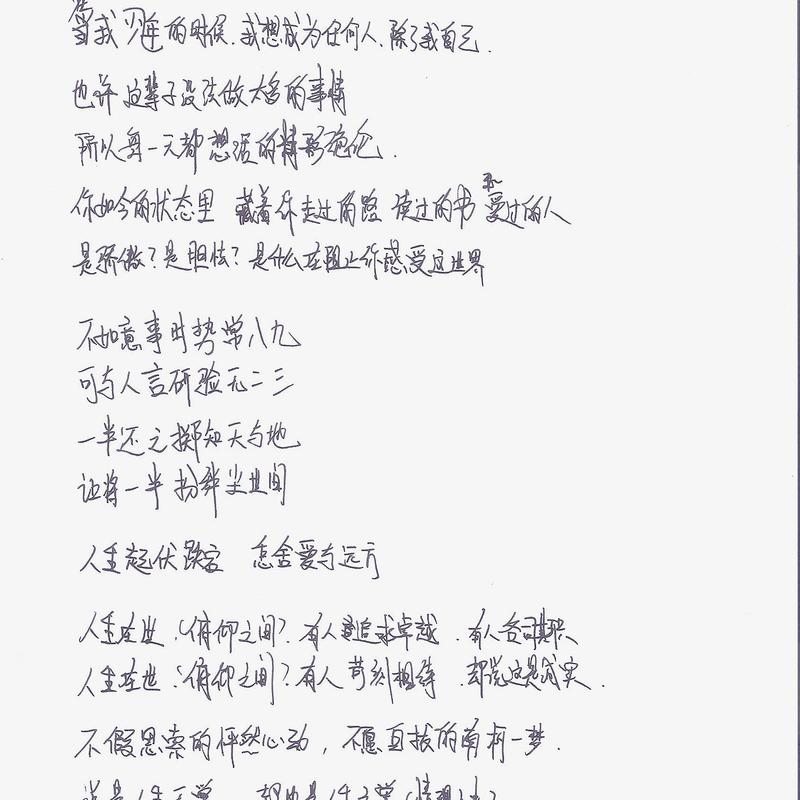 当我少年的时候.我想成为任何人.除了我自己.
也许这辈子没法做太多的事情
所以每一天都想活的精彩绝伦.
你如今的状态里 藏着你走过的路 读过的书 和爱过的人
是骄傲?是胆怯?是什么在阻止你感受这世界
不如意事时势常八九
可与人言研验无二三
一半还之掷知天与地
让将一半扮绊尘世间
人生起伏跌宕 怎舍爱与远方
人生在世.(俯仰之间?.有人追求卓越.有人各司其职
人生在世.(俯仰之间)?有人苛刻相待.却说这是成实.
不假思索的怦然心动,不愿自拔的南柯一梦.